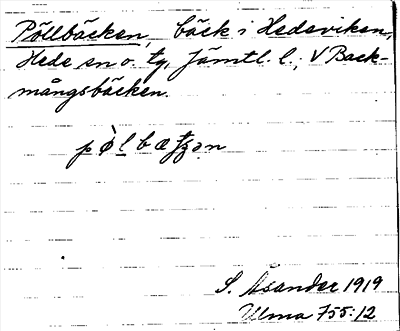 Pöllbäcken, bäck i Hedeviken,
Hede sn o. tg, Jämtl. l.; V Back-
mångsbäcken.
S. Åsander 1919
Ulma 755:12